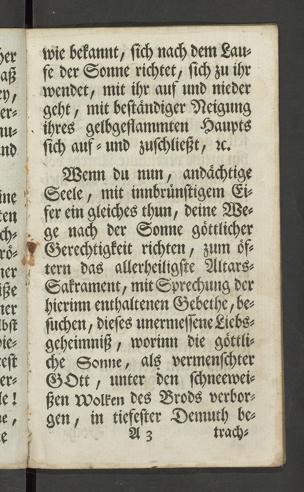 wie bekannt, sich nach dem Lau-
fe der Sonne richtet, sich zu ihr
wendet, mit ihr auf und nieder
geht, mit beständiger Neigung
ihres gelbgeflammten Haupts
sich auf- und zuschließt, ꝛc.
Wenn du nun, andächtige
Seele, mit innbrünstigem Ei-
fer ein gleiches thun, deine We-
ge nach der Sonne göttlicher
Gerechtigkeit richten, zum öf-
tern das allerheiligste Altars-
Sakrament, mit Sprechung der
hierinn enthaltenen Gebethe, be-
suchen, dieses unermessene Liebs-
geheimniß, worinn die göttli-
che Sonne, als vermenschter
GOtt, unter den schneewei-
ßen Wolken des Brods verbor-
gen, in tiefester Demuth be-
A 3 trach-